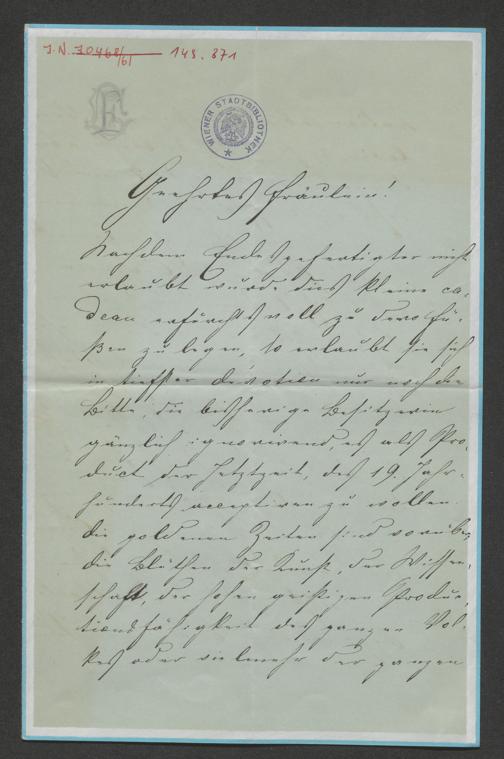 J.N. 70468/61 149.871
WIENER STADTBIBLIOTHEK
Geehrtes Fräulein!
Nachdem Endesgefertigter nicht
erlaubt wurde dies kleine ca-
deau erfurchtsvoll zu dero Fü-
ßen zu legen, so erlaubt sie sich
in tiefster devotion nur noch die
Bitte, die bisherige Besitzerin
gänzlich ignorirend, es als Pro-
duct der Jetztzeit, des 19. Jahr-
hunderts acceptiren zu wollen.
Die goldenen Zeiten sind vorüber,
die Blüthen der Kunst, der Wissen-
schaft, der hohen geistigen Produc-
tionsfähigkeit des ganzen Vol-
kes oder vielmehr der ganzen